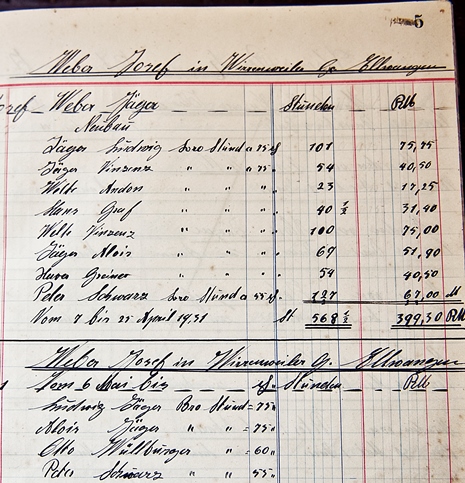 5
Weber Josef in Wirrenweiler Gr. Ellwangen
Josef Weber Jäger Stunden RM
Neubau
Jäger Ludwig pro Stund a 75 ₰ 101 75,75
Jäger Vinzenz " " a 75 " 54 40,50
Welte Anton " " " 23 17,25
Hans Graf " " " 40 ½ 31,40
Welte Vinzenz " " " 100 75,00
Jäger Alois " " " 69 51,90
Greiner " " " 54 40,50
Peter Schwarz pro Stund a 55 ₰ 127 67,00 M
Vom 7 bis 25 April 1931 St 568 ½ 399,30 RM
Weber Josef in Wirrenweiler G. Ellwangen
Vom 6 Mai bis ₰ Stunden RM
Ludwig Jäger Pro Stund = 75 "
Alois Jäger " " = 75 "
Otto " " = 60 "
Peter Schwarz " " 55 "